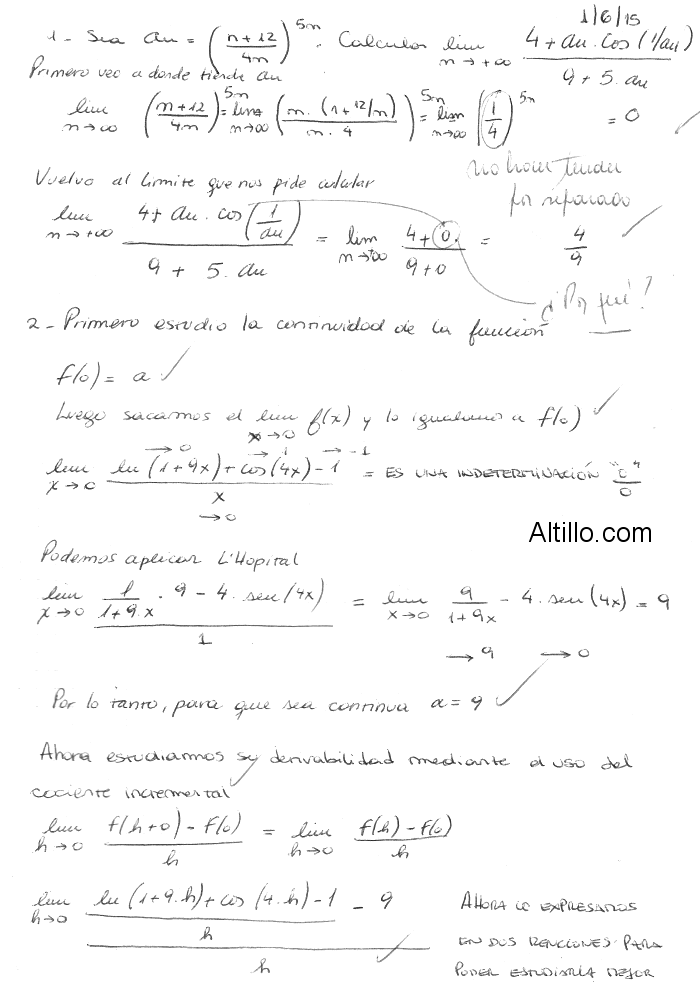 1/6/15
1- Sea an = ((n+12)/4n)^5n. Calcular lim n→+∞ (4+an.cos(1/an))/(9+5.an)
Primero veo a donde tiende an
lim n→∞ ((n+12)/4n)^5n = lim n→∞ ((n.(1+12/n))/(n.4))^5n = lim n→∞ (1/4)^5n = 0
no hacer tender
por separado
Vuelvo al límite que nos pide calcular
lim n→+∞ (4+an.cos(1/an))/(9+5.an) = lim n→+∞ (4+0.)/(9+0) = 4/9
¿Por qué?
2- Primero estudio la continuidad de la función
f(0) = a
Luego sacamos el lim x→0 f(x) y lo igualamos a f(0)
→0 →1 →-1
lim x→0 (ln(1+9x)+cos(4x)-1)/x = ES UNA INDETERMINACIÓN "0/0"
→0
Altillo.com
Podemos aplicar L'Hopital
lim x→0 (1/(1+9.x) . 9 - 4.sen(4x))/1 = lim x→0 9/(1+9x) - 4.sen(4x) = 9
→9 →0
Por lo tanto, para que sea continua a=9
Ahora estudiarmos su derivabilidad mediante el uso del
cociente incremental
lim h→0 (f(h+0)-f(0))/h = lim h→0 (f(h)-f(0))/h
lim h→0 ((ln(1+9.h)+cos(4.h)-1)/h - 9)/h
AHORA LO EXPRESAMOS
EN DOS PARA
PODER ESTUDIARLA MEJOR